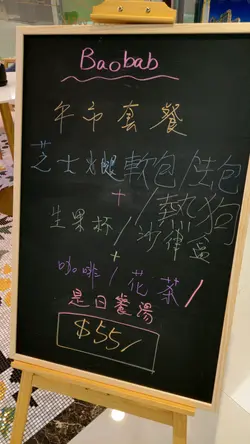 Baobab
午市套餐
芝士火腿軟包/蛋包/熱狗
+
生果杯/沙律盒
+
咖啡/花茶/
是日餐湯
$55/